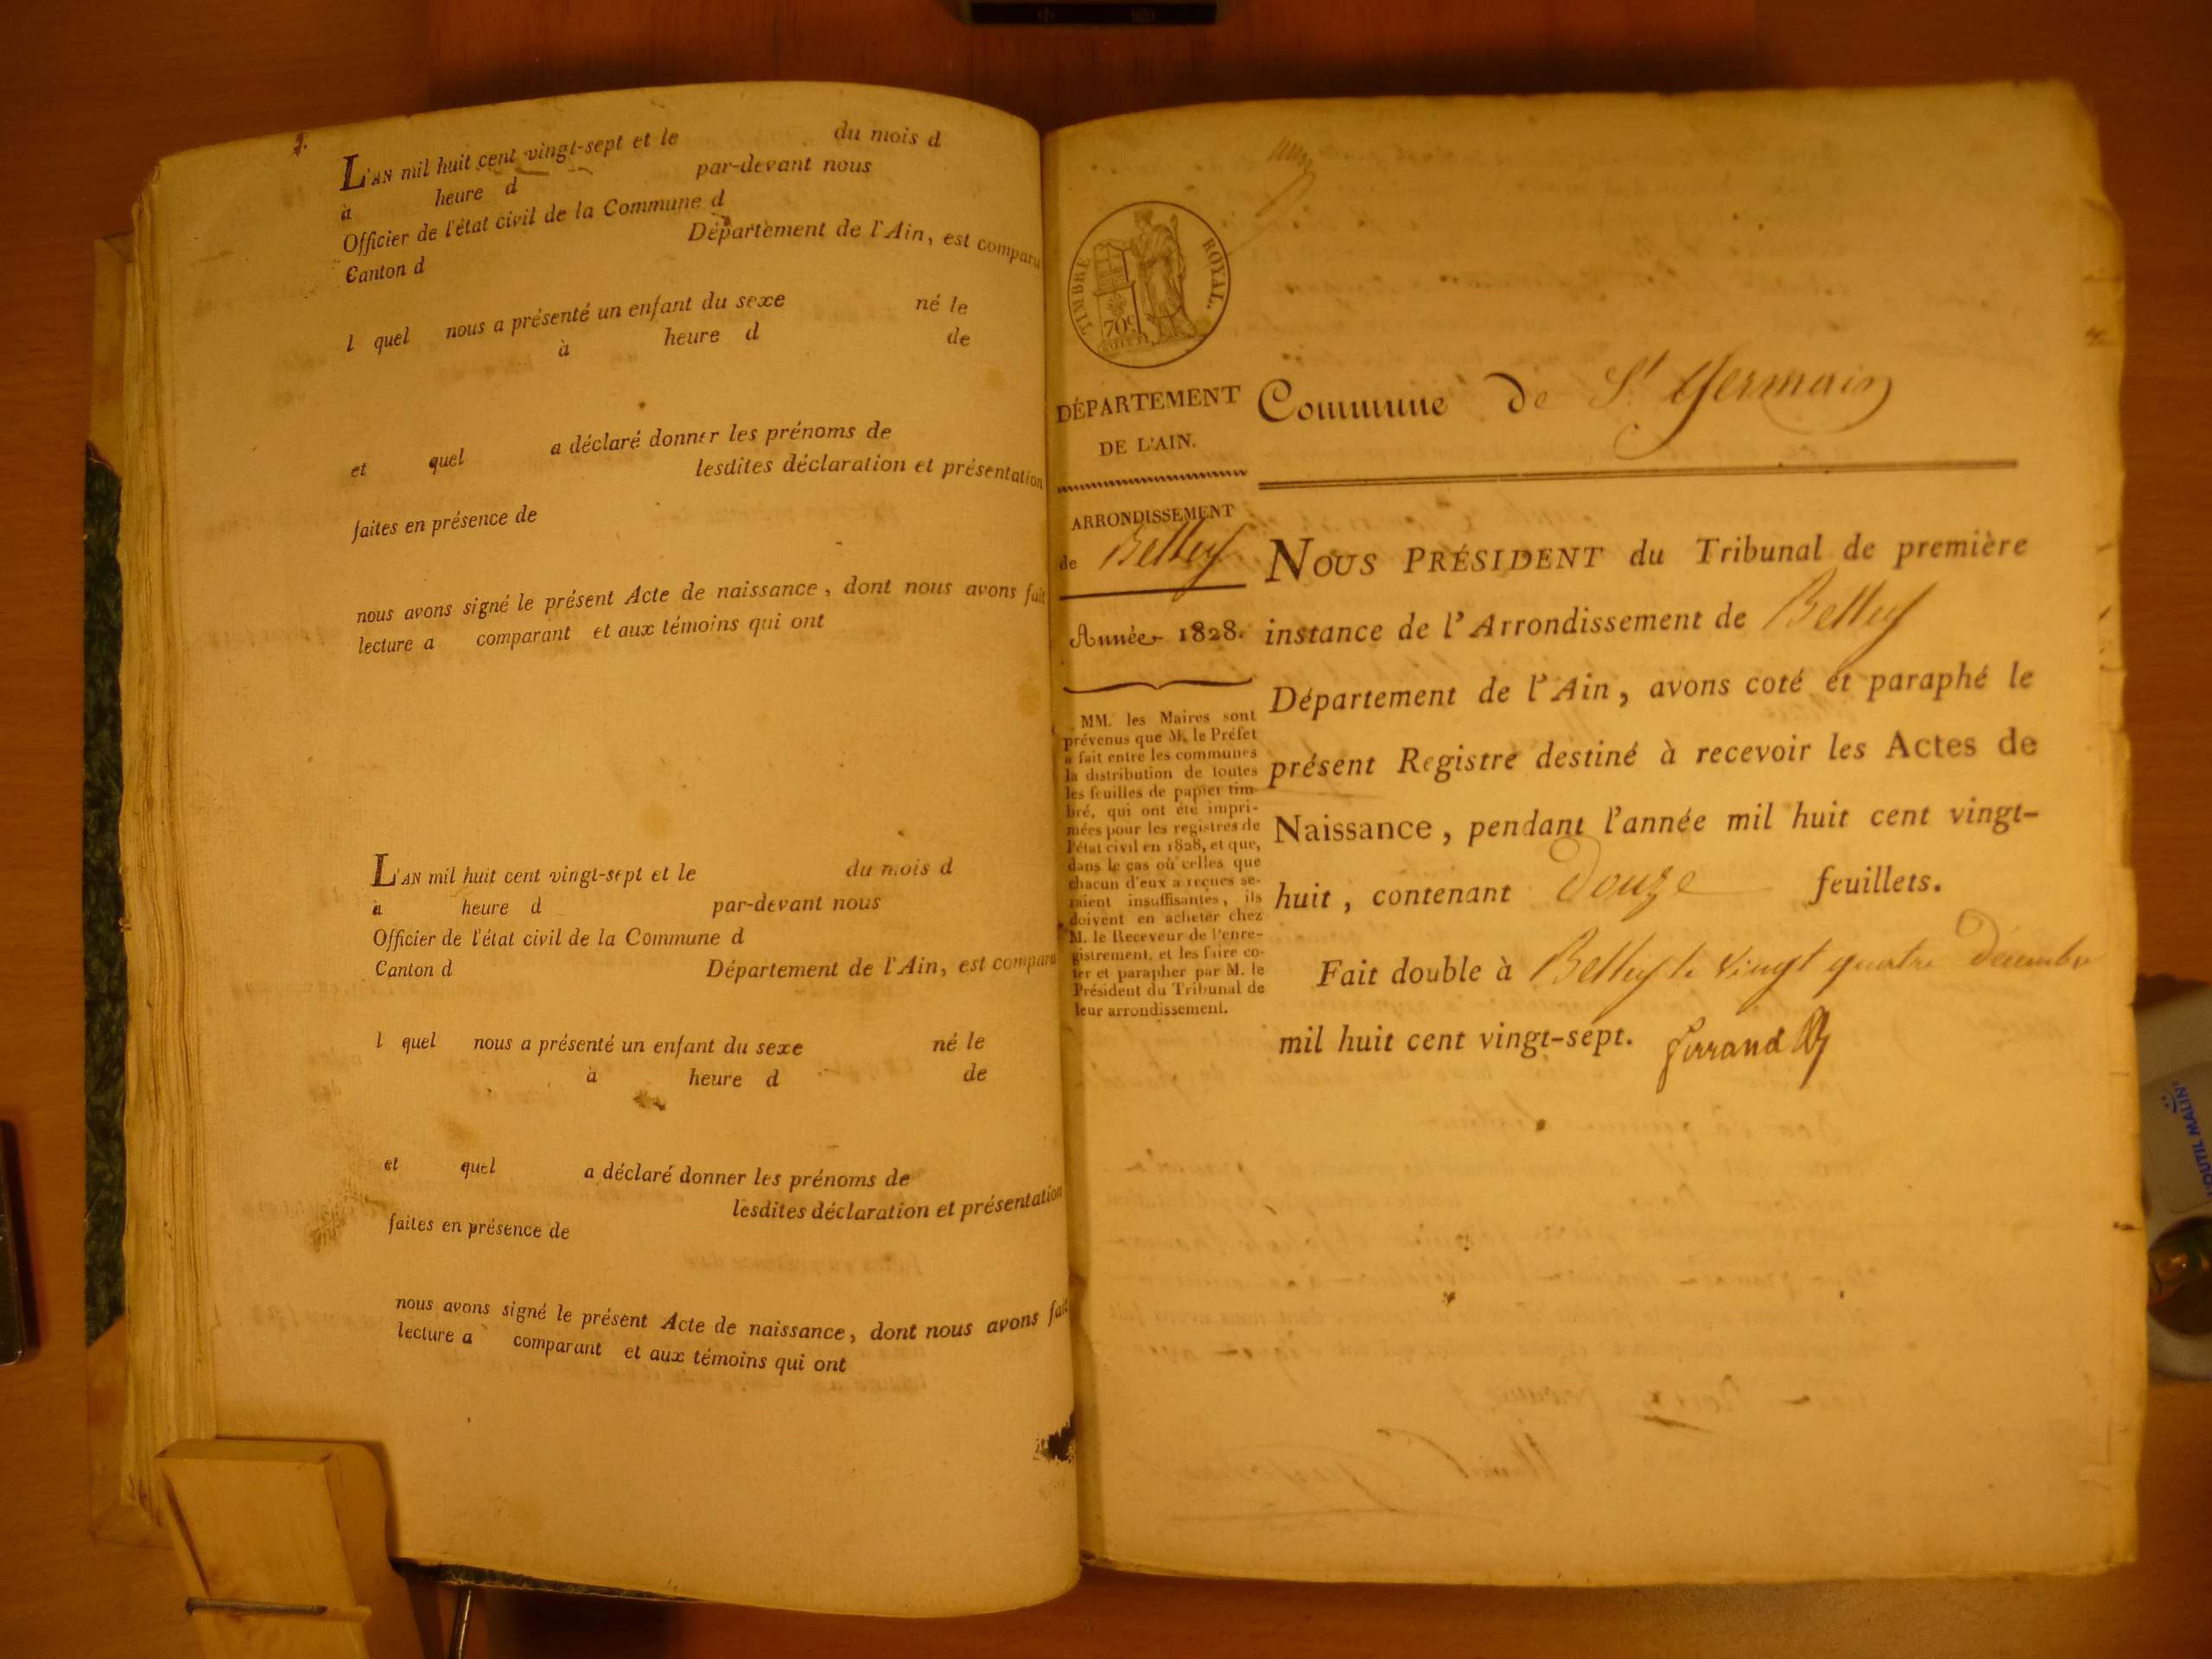 L'AN mil huit cent vingt-sept et le du mois d
à heure d par-devant nous
Officier de l'état civil de la Commune d
Canton d Département de l'Ain, est comparu
l quel nous a présenté un enfant du sexe né le
à heure d de
et quel a déclaré donner les prénoms de
lesdites déclaration et présentation
faites en présence de
nous avons signé le présent Acte de naissance, dont nous avons fait
lecture a comparant et aux témoins qui ont
L'AN mil huit cent vingt-sept et le du mois d
à heure d par-devant nous
Officier de l'état civil de la Commune d
Canton d Département de l'Ain, est comparu
l quel nous a présenté un enfant du sexe né le
à heure d de
et quel a déclaré donner les prénoms de
lesdites déclaration et présentation
faites en présence de
nous avons signé le présent Acte de naissance, dont nous avons fait
lecture a comparant et aux témoins qui ont
TIMBRE ROYAL.
70c
DÉPARTEMENT
DE L'AIN.
ARRONDISSEMENT
de Belley
Année 1828.
MM. les Maires sont
prévenus que M. le Préfet
a fait entre les communes
la distribution de toutes
les feuilles de papier tim-
bré, qui ont été impri-
mées pour les registres de
l'état civil en 1828, et que,
dans le cas où celles que
chacun d'eux a reçues se-
raient insuffisantes, ils
doivent en acheter chez
M. le Receveur de l'enre-
gistrement, et les faire co-
ter et parapher par M. le
Président du Tribunal de
leur arrondissement.
Commune de St Germain
NOUS PRÉSIDENT du Tribunal de première
instance de l'Arrondissement de Belley
Département de l'Ain, avons coté et paraphé le
présent Registre destiné à recevoir les Actes de
Naissance, pendant l'année mil huit cent vingt-
huit, contenant Douze feuillets.
Fait double à Belley le vingt quatre Décembre
mil huit cent vingt-sept. Ferrand
OUTIL MALIN